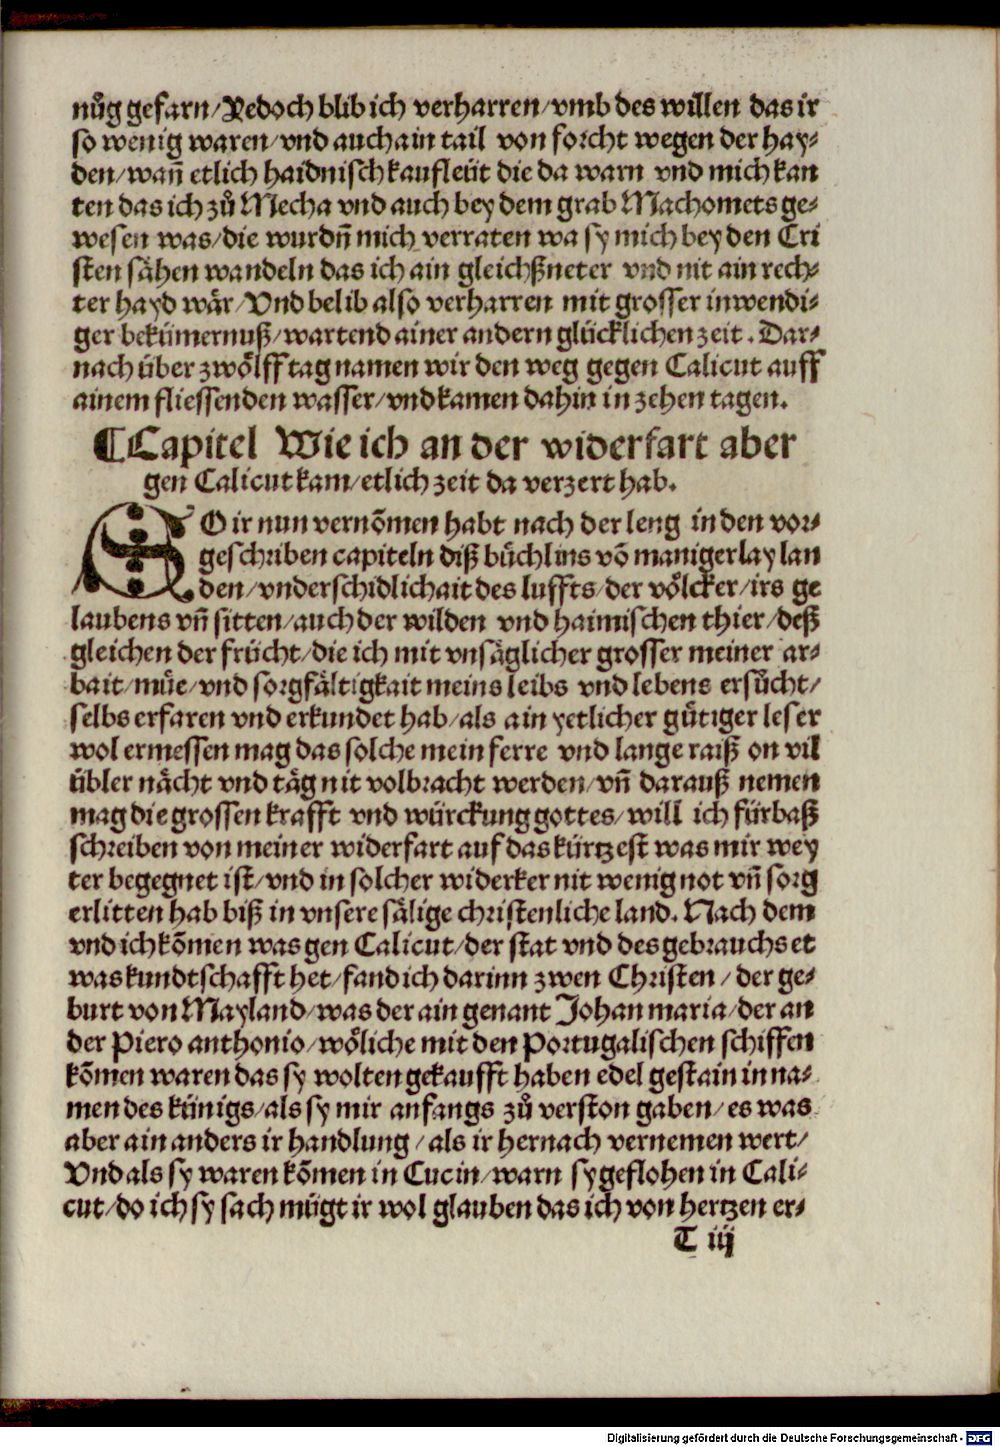 nůg gefarn/Yedoch blib ich verharren/vmb des willen das ir
so wenig waren/vnd auch ain tail von forcht wegen der hay⸗
den/wañ etlich haidnisch kaufleüt die da warn vnd mich kan
ten das ich zů Mecha vnd auch bey dem grab Machomets ge⸗
wesen was/die wurdñ mich verraten wa sy mich bey den Cri
sten sähen wandeln das ich ain gleichßneter vnd nit ain rech⸗
ter hayd wär/Vnd belib also verharren mit grosser inwendi⸗
ger bekümernuß/wartend ainer andern glücklichen zeit. Dar⸗
nach über zwölff tag namen wir den weg gegen Calicut auff
ainem fliessenden wasser/vnd kamen dahin in zehen tagen.
¶Capitel Wie ich an der widerfart aber
gen Calicut kam/etlich zeit da verzert hab.
SO ir nun vernõmen habt nach der leng in den vor⸗
geschriben capiteln diß büchlins võ manigerlay lan
den/vnderschidlichait des luffts/der völcker/irs ge
laubens vñ sitten/auch der wilden vnd haimischen thier/deß
gleichen der frücht/die ich mit vnsäglicher grosser meiner ar⸗
bait/müe/vnd sorgfältigkait meins leibs vnd lebens ersücht/
selbs erfaren vnd erkundet hab/als ain yetlicher gütiger leser
wol ermessen mag das solche mein ferre vnd lange raiß on vil
übler nächt vnd täg nit volbracht werden/vñ darauß nemen
mag die grossen krafft vnd würckung gottes/will ich fürbaß
schreiben von meiner widerfart auf das kürtzest was mir wey
ter begegnet ist/vnd in solcher widerker nit wenig not vñ sorg
erlitten hab biß in vnsere sälige christenliche land. Nach dem
vnd ich kõmen was gen Calicut/der stat vnd des gebrauchs et
was kundtschafft het/fand ich darinn zwen Christen/der ge⸗
burt von Mayland/was der ain genant Johan maria/der an
der Piero anthonio/wöliche mit den Portugalischen schiffen
kõmen waren das sy wolten gekaufft haben edel gestain in na⸗
men des künigs/als sy mir anfangs zů verston gaben/es was
aber ain anders ir handlung/als ir hernach vernemen wert/
Vnd als sy waren kõmen in Cucin/warn sy geflohen in Cali⸗
cut/do ich sy sach mügt ir wol glauben das ich von hertzen er⸗
T iij
Digitalisierung gefördert durch die Deutsche Forschungsgemeinschaft - DFG